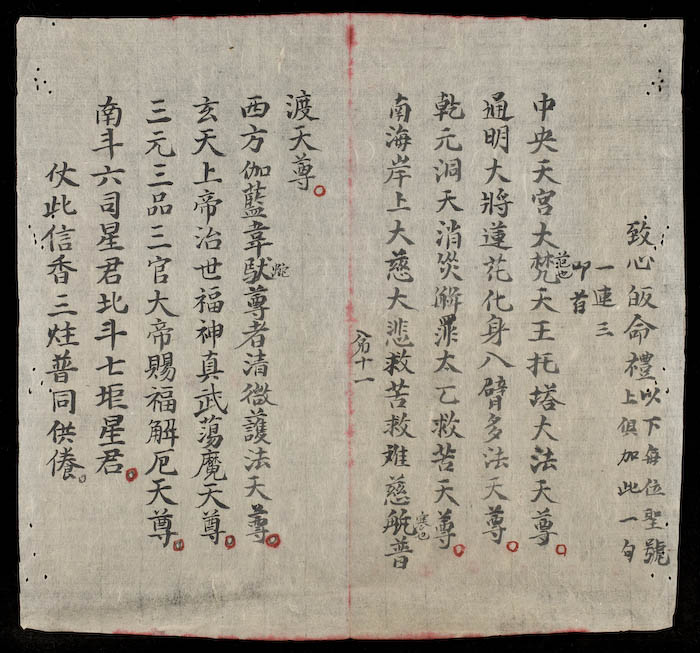 致心皈命禮以下每位聖號上俱加此一句
一連三叩首
中央天宮大梵范也天王托塔大法天尊
通明大將蓮花化身八臂多法天尊
乾元洞天消災解罪太乙救苦天尊
南海岸上大慈大悲救苦救难慈航寒也普
渡天尊
西方伽藍韋馱蛇尊者清微護法天尊
玄天上帝治世福神真武蕩魔天尊
三元三品三官大帝賜福解厄天尊
南斗六司星君北斗七垣星君
仗此信香三炷普同供養